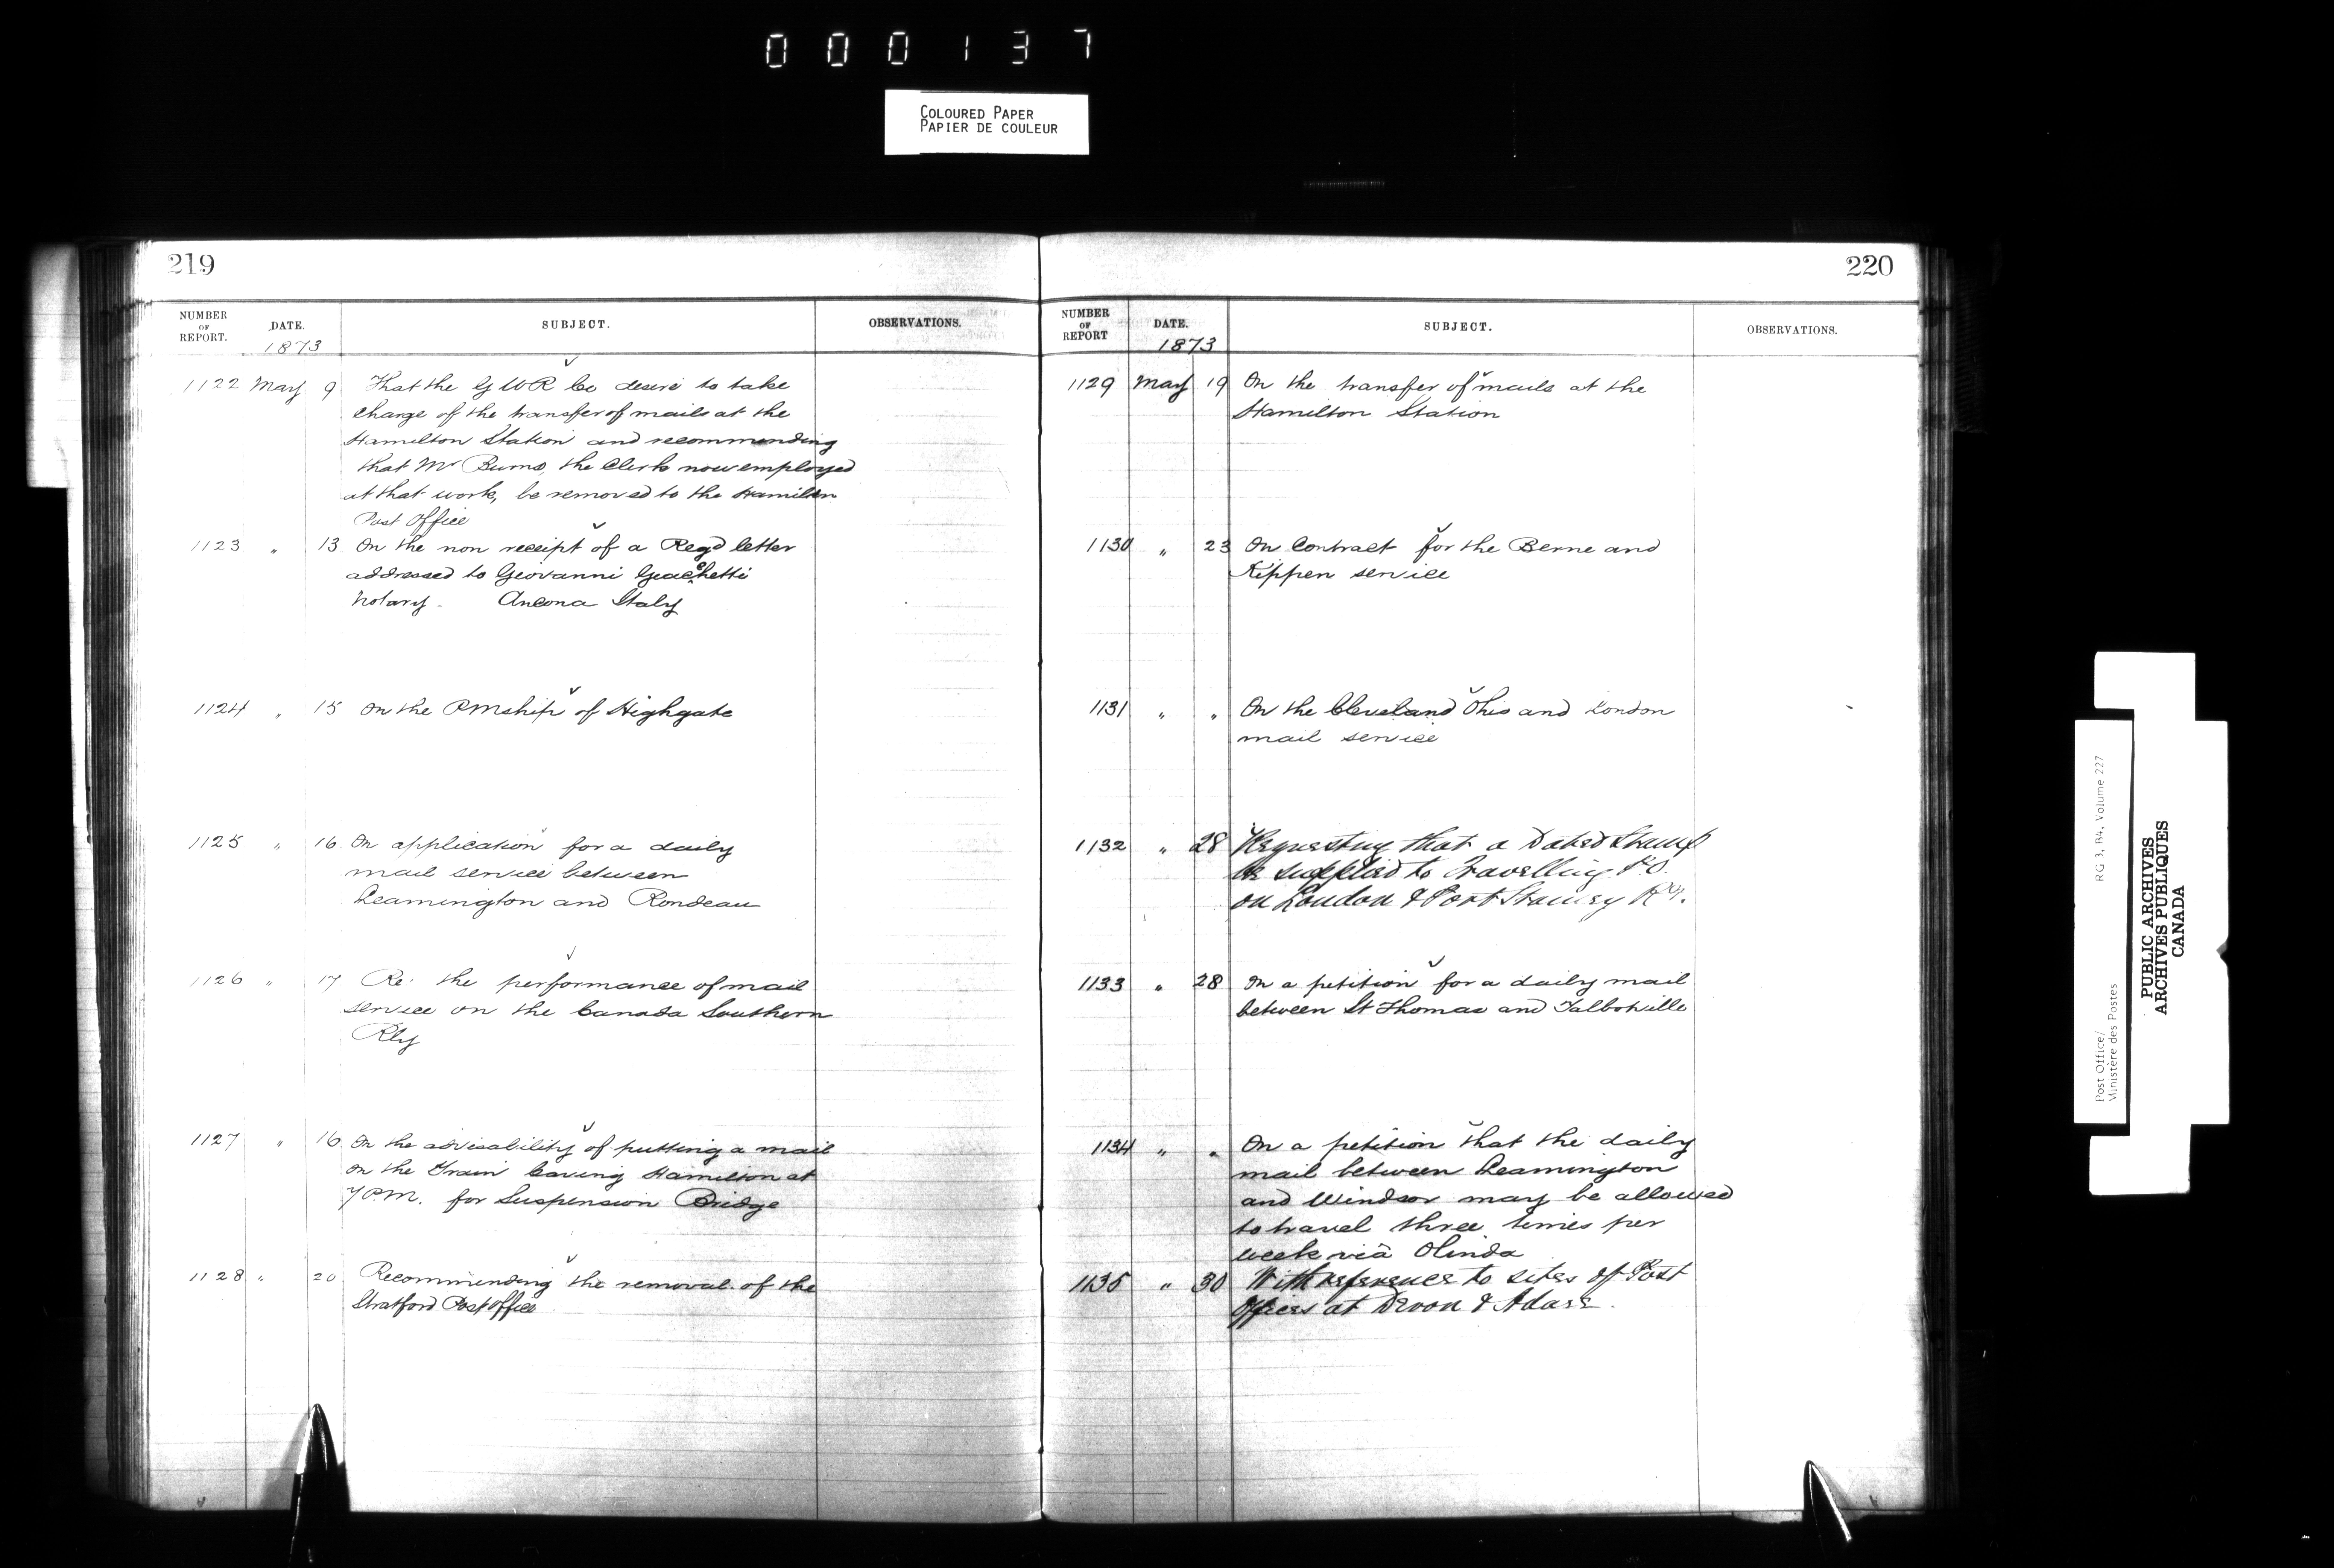 000137
COLOURED PAPER
PAPIER DE COULEUR
219
NUMBER OF REPORT. DATE. SUBJECT. OBSERVATIONS.
1873
1122 May 9 That the G W R Co desire to take
charge of the transfer of mails at the
Hamilton Station and recommending
that Mr Burns, the Clerk now employed
at that work, be removed to the Hamilton
Post Office
1123 " 13 On the non receipt of a Regd letter
addressed to Giovanni Giacchetti
Notary - Ancona Italy
1124 " 15 On the PMship of Highgate
1125 " 16 On application for a daily
mail service between
Leamington and Rondeau
1126 " 17 Re: the performance of mail
service on the Canada Southern
Rly
1127 " 16 On the advisability of putting a mail
on the Train leaving Hamilton at
7 P.M. for Suspension Bridge
1128 " 20 Recommending the removal of the
Stratford Post Office
220
NUMBER OF REPORT DATE. SUBJECT. OBSERVATIONS.
1873
1129 May 19 On the transfer of mails at the
Hamilton Station
1130 " 23 On Contract for the Berne and
Kippen service
1131 " " On the Cleveland Ohio and London
mail service
1132 " 28 Requesting that a Dated Stamp
be supplied to Travelling P.O.
on London & Port Stanley Ry.
1133 " 28 On a petition for a daily mail
between St Thomas and Talbotville
1134 " " On a petition that the daily
mail between Leamington
and Windsor may be allowed
to travel three times per
week viâ Olinda
1135 " 30 With reference to sites of Post
Offices at Devon & Adare.
Post Office/
Ministère des Postes
RG 3, B4, Volume 227
PUBLIC ARCHIVES
ARCHIVES PUBLIQUES
CANADA